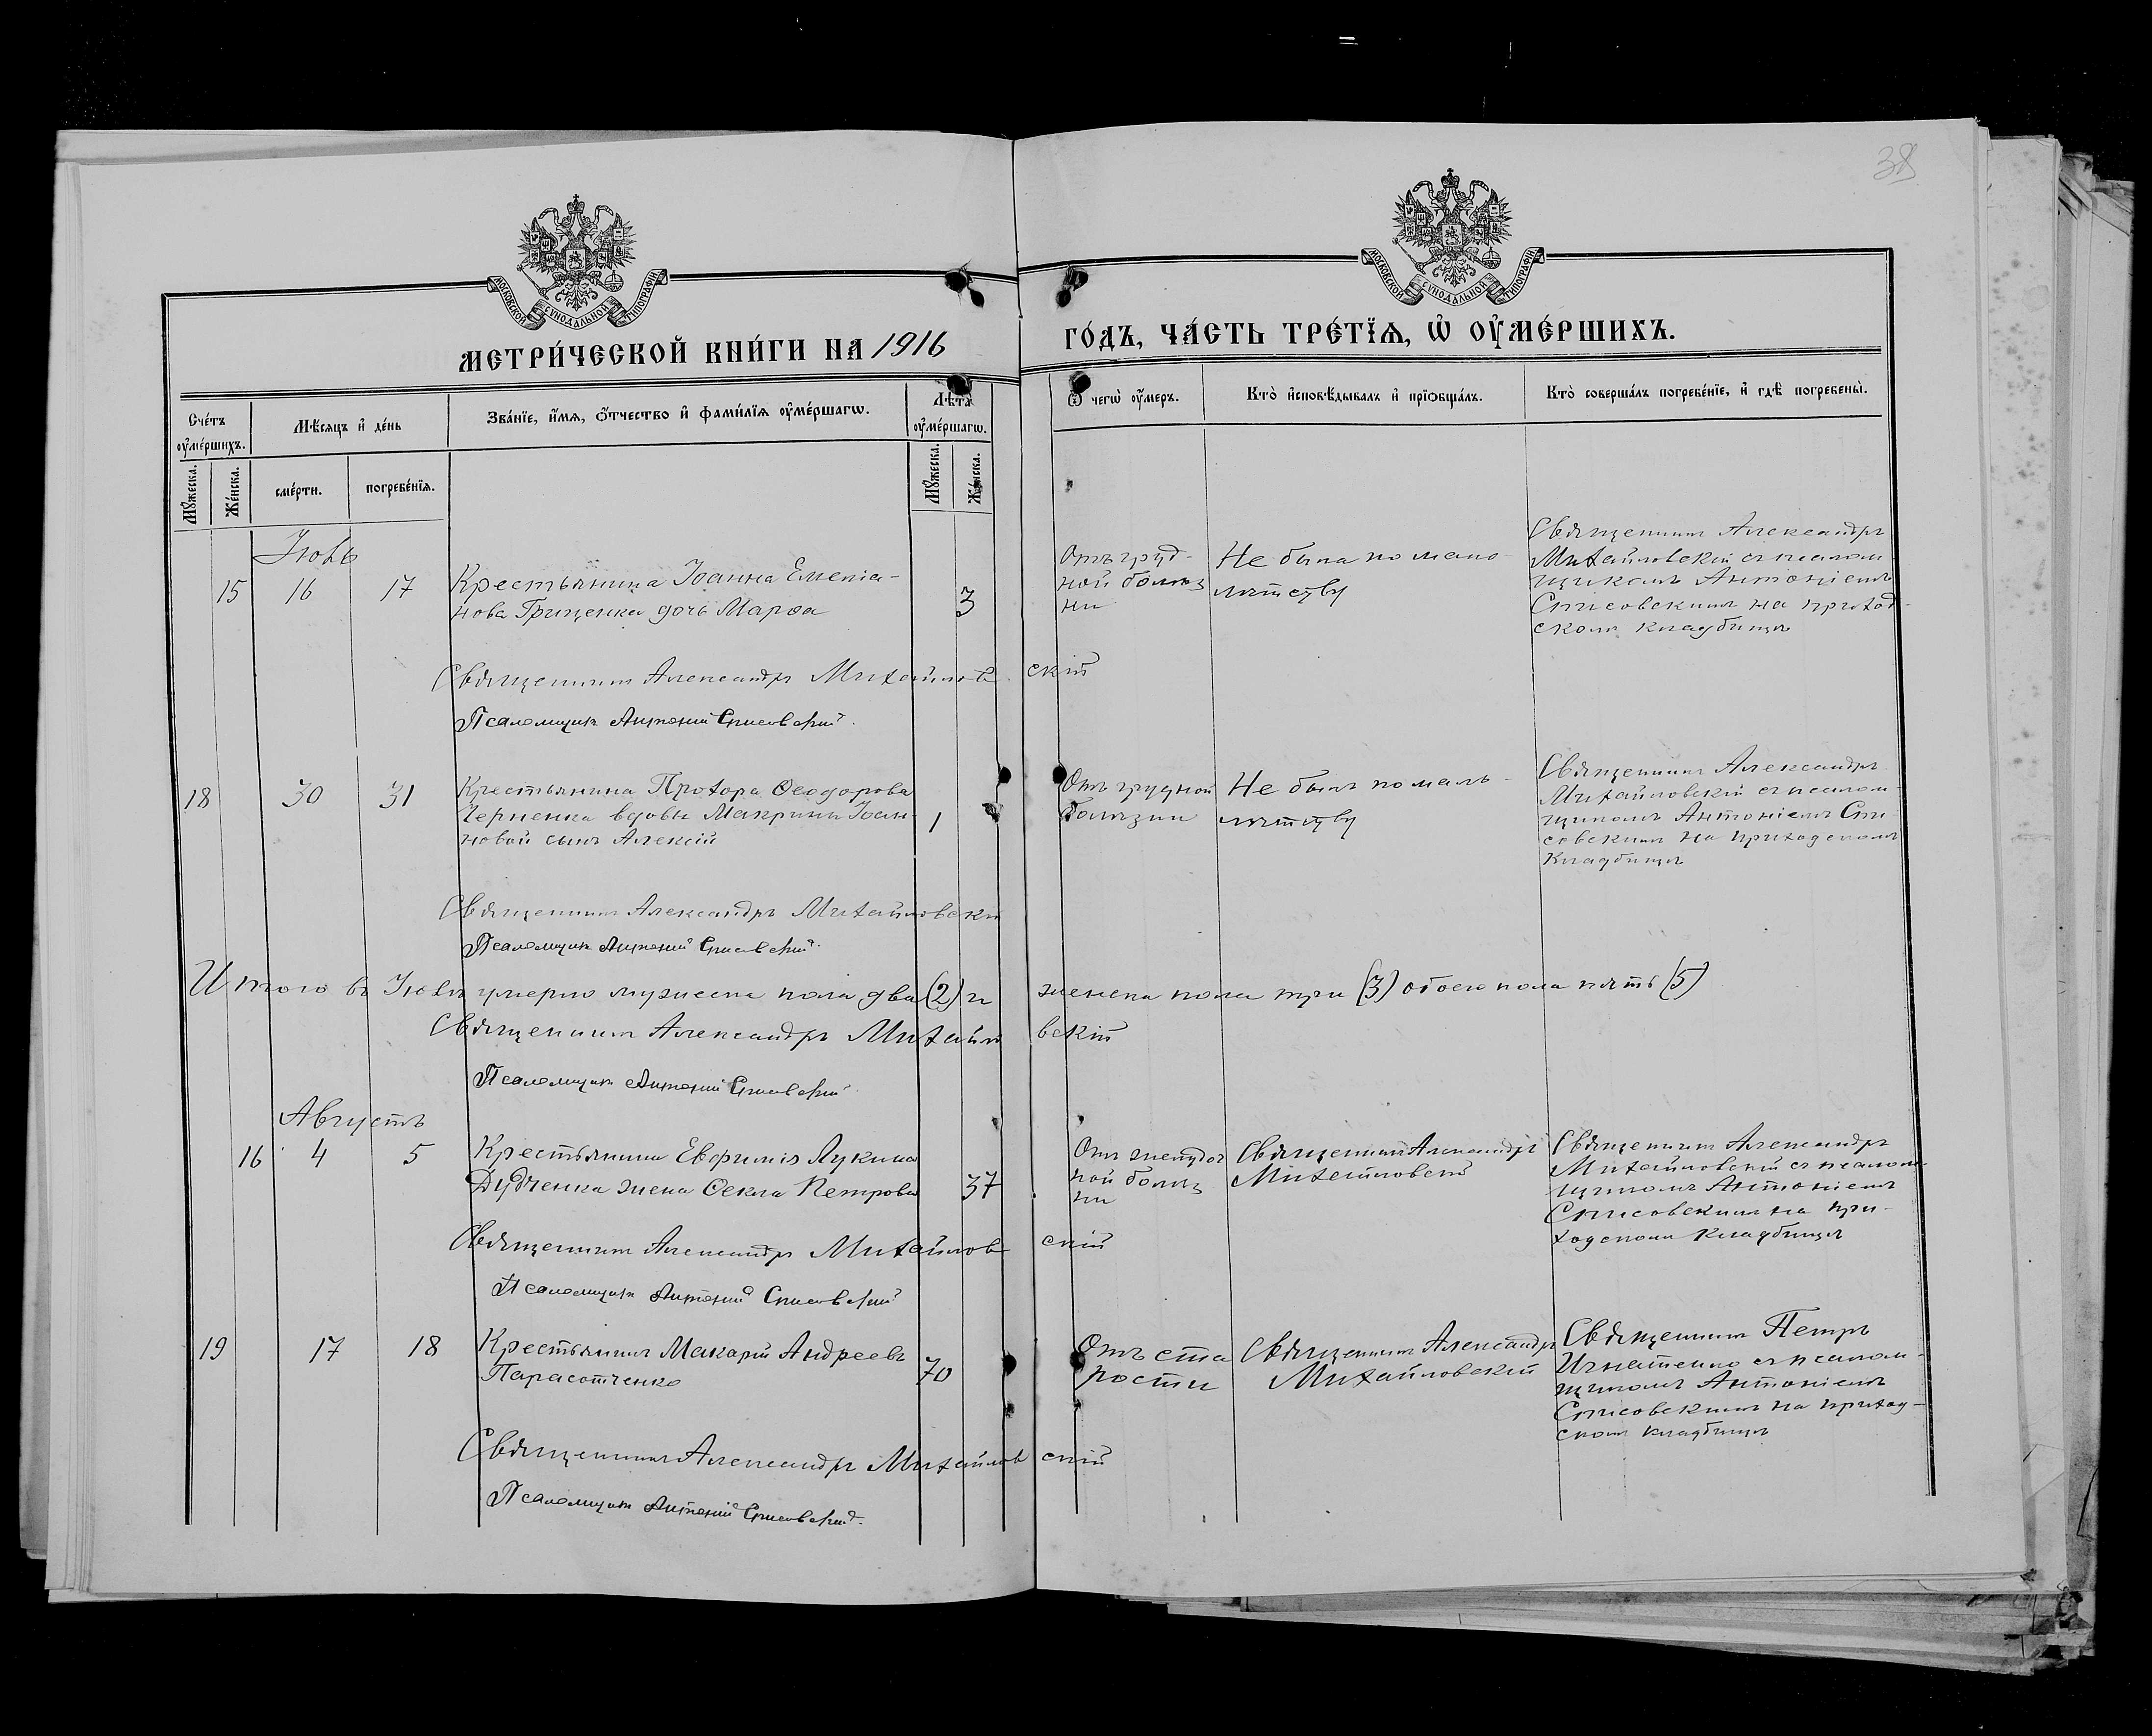 38
МОСКОВСКОЙ СѴНОДАЛЬНОЙ ТИПОГРАФІИ
МОСКОВСКОЙ СѴНОДАЛЬНОЙ ТИПОГРАФІИ
МЕТРИ́ЧЕСКОЙ КНИ́ГИ НА 1916 ГО́ДЪ, ЧА́СТЬ ТРЕ́ТЇѦ, Ѡ҆ ОУ҆МЕ́РШИХЪ.
Сче́тъ оу҆ме́ршихъ.
Мѣ́сяцъ и҆ де́нь
Зва́нїе, и҆́мѧ, ѻ҆́тчество и҆ фами́лїѧ оу҆ме́ршагѡ.
Лѣ́та оу҆ме́ршагѡ.
Ѿ чегѡ̀ оу҆́меръ.
Кто̀ и҆сповѣ́дывалъ и҆ прїѻбща́лъ.
Кто̀ соверша́лъ погребе́нїе, и҆ гдѣ̀ погребены̀.
Мꙋ́жеска.
Же́нска.
сме́рти.
погребе́нїѧ.
Мꙋ́жеска.
Же́нска.
Іюль
15 16 17
Крестьянина Іоанна Емелія-
нова Грищенка дочь Марѳа
3
Отъ груд-
ной болѣз
ни
Не была по мало-
лѣтству
Священникъ Александръ
Михайловскій съ псалом
щикомъ Антоніемъ
Списовскимъ на приход-
скомъ кладбищѣ
Священникъ Александръ Михайловскій
Псаломщикъ Антоній Списовскій.
18 30 31
Крестьянина Прохора Ѳеодорова
Черненка вдовы Макрины Іоан-
новой сынъ Алексій
1
Отъ грудной
болѣзни
Не былъ по мало-
лѣтству
Священникъ Александръ
Михайловскій съ псалом
щикомъ Антоніемъ Спи
совскимъ на приходскомъ
кладбищѣ
Священникъ Александръ Михайловскій
Псаломщикъ Антоній Списовскій.
Итого въ Іюлѣ умерло мужеска пола два (2) и женска пола три (3) обоего пола пять (5)
Священникъ Александръ Михайловскій
Псаломщикъ Антоній Списовскій
Августъ
16 4 5
Крестьянина Евѳимія Лукина
Дубченка жена Ѳекла Петрова
37
Отъ желудоч
ной болѣз
ни
Священникъ Александръ
Михайловскій
Священникъ Александръ
Михайловскій съ псалом-
щикомъ Антоніемъ
Списовскимъ на при-
ходскомъ кладбищѣ
Священникъ Александръ Михайловскій
Псаломщикъ Антоній Списовскій
19 17 18
Крестьянинъ Макарій Андреевъ
Парасотченко
70
Отъ ста
рости
Священникъ Александръ
Михайловскій
Священникъ Петръ
Игнатенко съ псалом-
щикомъ Антоніемъ
Списовскимъ на приход-
скомъ кладбищѣ
Священникъ Александръ Михайловскій
Псаломщикъ Антоній Списовскій.